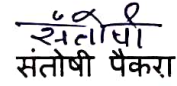 संतोषी
संतोषी पैकरा